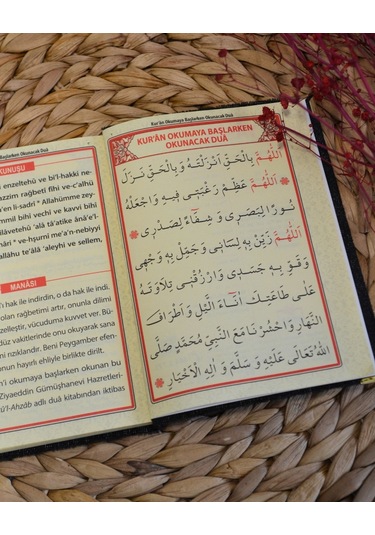 Başlarken Okunacak Duâ
KUNUŞU
enzeltehû ve bi'l-hakkı ne-
azzim rağbetî fîhi ve-c'alhü
en li-sadrî * Allahümme zey-
mmil bihî vechî ve kavvi bihî
ilâvetehû 'alâ tâ'atike ânâ'e'l-
hâri * ve-hşurnî me'a'n-nebiyyi
llâhu te'âlâ 'aleyhi ve sellem,
MANÂSI
'i hak ile indirdin, o da hak ile indi.
olan rağbetimi artır, onunla dilimi
zelleştir, vücuduma kuvvet ver. Bü-
düz vakitlerinde onu okuyarak sana
ni rızıklandır. Beni Peygamber efen-
unun hayırlı ehliyle birlikte dirilt.
'i okumaya başlarken okunan bu
Ziyaeddin Gümüşhanevi Hazretleri-
'l-Ahzâb adlı duâ kitabından iktibas
Kur'ân Okumaya Başlarken Okunacak Duâ
KUR'ÂN OKUMAYA BAŞLARKEN
OKUNACAK DUÂ
اَللّٰهُمَّ بِالْحَقِّ اَنْزَلْتَهُ وَبِالْحَقِّ نَزَلَ
اَللّٰهُمَّ عَظِّمْ رَغْبَتِى فِيهِ وَاجْعَلْهُ
نُورًا لِبَصَرِى وَ شِفَاءً لِصَدْرِى
اَللّٰهُمَّ زَيِّنْ بِهِ لِسَانِى وَجَمِّلْ بِهِ وَجْهِى
وَ قَوِّ بِهِ جَسَدِى وَارْزُقْنِى تِلَاوَتَهُ
عَلٰى طَاعَتِكَ اٰنَاءَ الَّيْلِ وَ اَطْرَافَ
النَّهَارِ وَاحْشُرْنَا مَعَ النَّبِىِّ مُحَمَّدٍ صَلَّى
اللّٰهُ تَعَالٰى عَلَيْهِ وَ سَلَّمَ وَ اٰلِهِ الْاَخْيَارِ